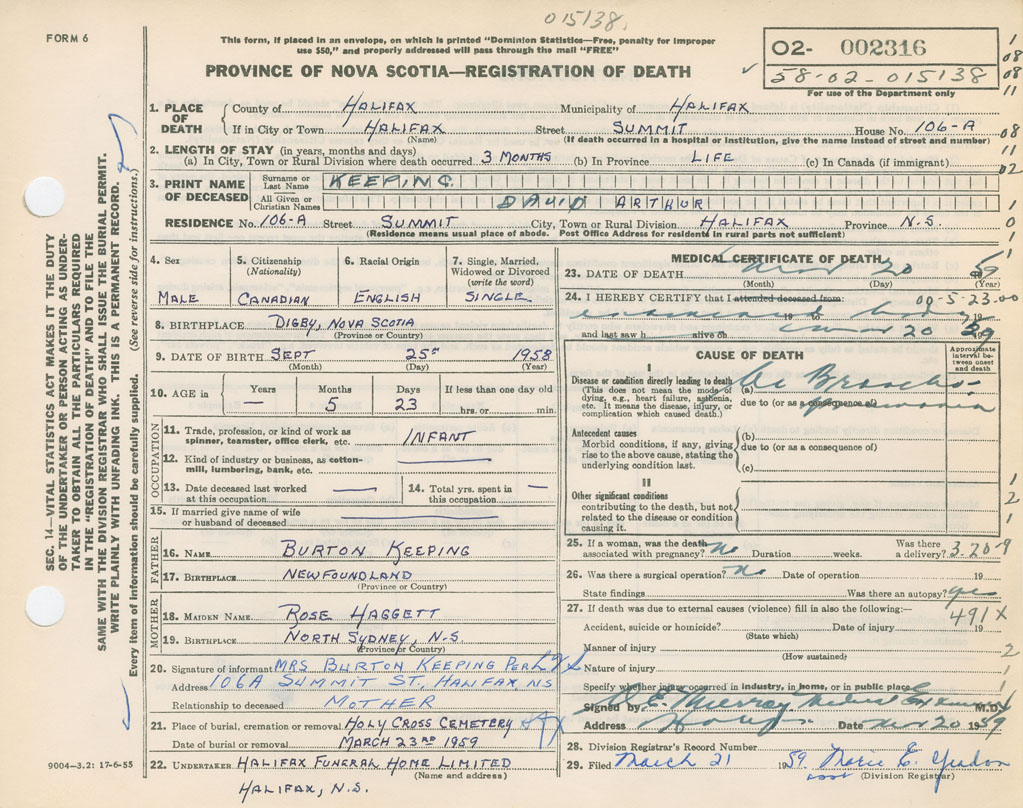 015138.
FORM 6
This form, if placed in an envelope, on which is printed "Dominion Statistics—Free, penalty for improper
use $50," and properly addressed will pass through the mail "FREE"
PROVINCE OF NOVA SCOTIA—REGISTRATION OF DEATH
02- 002316
58-02-015138
For use of the Department only
1. PLACE OF DEATH
County of HALIFAX Municipality of HALIFAX
If in City or Town HALIFAX Street SUMMIT House No. 106-A
(Name) (If death occurred in a hospital or institution, give the name instead of street and number)
2. LENGTH OF STAY (in years, months and days)
(a) In City, Town or Rural Division where death occurred 3 MONTHS (b) In Province LIFE (c) In Canada (if immigrant)
3. PRINT NAME OF DECEASED
Surname or Last Name KEEPING
All Given or Christian Names DAVID ARTHUR
RESIDENCE No. 106-A Street SUMMIT City, Town or Rural Division HALIFAX Province N.S.
(Residence means usual place of abode. Post Office Address for residents in rural parts not sufficient)
4. Sex
MALE
5. Citizenship (Nationality)
CANADIAN
6. Racial Origin
ENGLISH
7. Single, Married, Widowed or Divorced (write the word)
SINGLE
8. BIRTHPLACE DIGBY, NOVA SCOTIA
(Province or Country)
9. DATE OF BIRTH SEPT 25th 1958
(Month) (Day) (Year)
10. AGE in Years — Months 5 Days 23 If less than one day old hrs. or min.
OCCUPATION
11. Trade, profession, or kind of work as spinner, teamster, office clerk, etc. INFANT
12. Kind of industry or business, as cotton-mill, lumbering, bank, etc. —
13. Date deceased last worked at this occupation —
14. Total yrs. spent in this occupation —
15. If married give name of wife or husband of deceased —
FATHER
16. NAME BURTON KEEPING
17. BIRTHPLACE NEWFOUNDLAND
(Province or Country)
MOTHER
18. MAIDEN NAME ROSE HAGGETT
19. BIRTHPLACE NORTH SYDNEY, N.S.
(Province or Country)
20. Signature of informant MRS BURTON KEEPING PER
Address 106A SUMMIT ST., HALIFAX, NS
Relationship to deceased MOTHER
21. Place of burial, cremation or removal HOLY CROSS CEMETERY
Date of burial or removal MARCH 23RD 1959
22. UNDERTAKER HALIFAX FUNERAL HOME LIMITED
(Name and address)
HALIFAX, N.S.
9004—3.2: 17-6-55
MEDICAL CERTIFICATE OF DEATH
23. DATE OF DEATH Mar 20 59
(Month) (Day) (Year)
24. I HEREBY CERTIFY that I attended deceased from: 00-5-23.00
examined body
19 to 19
and last saw h alive on Mar 20 59
CAUSE OF DEATH
Approximate interval between onset and death
I
Disease or condition directly leading to death (a) Ac Broncho-
(This does not mean the mode of dying, e.g., heart failure, asthenia, etc. It means the disease, injury, or complication which caused death.)
due to (or as a consequence of) pneumonia
Antecedent causes
Morbid conditions, if any, giving rise to the above cause, stating the underlying condition last.
(b)
due to (or as a consequence of)
(c)
II
Other significant conditions
contributing to the death, but not related to the disease or condition causing it.
25. If a woman, was the death associated with pregnancy? no Duration weeks. Was there a delivery? 3.20-9
26. Was there a surgical operation? no Date of operation 19
State findings Was there an autopsy? yes
27. If death was due to external causes (violence) fill in also the following:— 491X
Accident, suicide or homicide? Date of injury 19
(State which)
Manner of injury
(How sustained)
Nature of injury
Specify whether injury occurred in industry, in home, or in public place
Signed by E. Murray Medical Examiner M.D.
Address Date Mar 20 1959
28. Division Registrar's Record Number
29. Filed March 21 1959 Marie E.
(Division Registrar)
SEC. 14—VITAL STATISTICS ACT MAKES IT THE DUTY
OF THE UNDERTAKER OR PERSON ACTING AS UNDER-
TAKER TO OBTAIN ALL THE PARTICULARS REQUIRED
IN THE "REGISTRATION OF DEATH" AND TO FILE THE
SAME WITH THE DIVISION REGISTRAR WHO SHALL ISSUE THE BURIAL PERMIT.
WRITE PLAINLY WITH UNFADING INK. THIS IS A PERMANENT RECORD.
Every item of information should be carefully supplied. (See reverse side for instructions.)
1
08
08
11
08
11
02
1
0
1
1
2
1
2
1
1